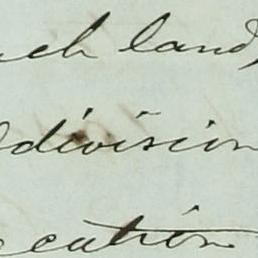 uch land,
ddivision
ecation